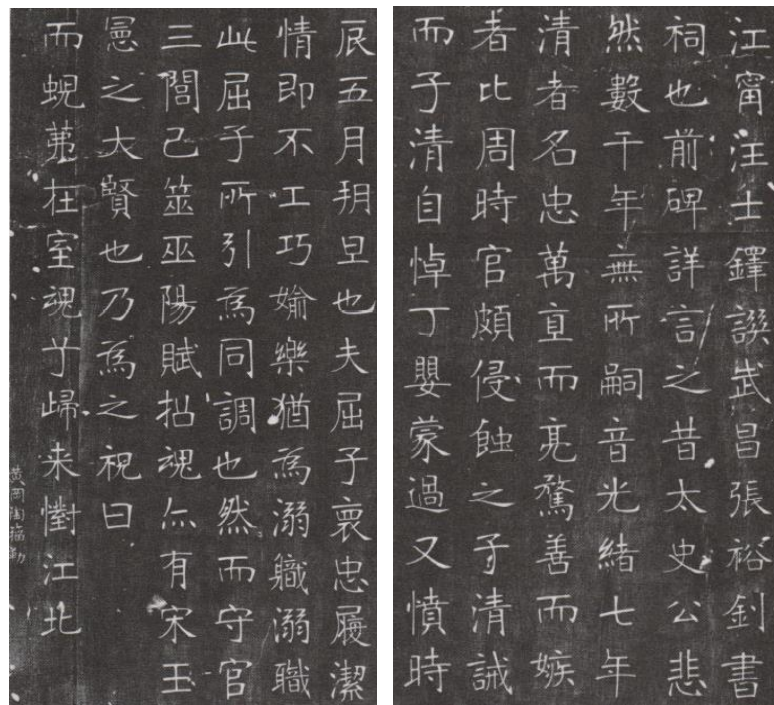 江甯汪士鐸譔武昌張裕釗書
祠也前碑詳言之昔太史公悲
然數千年無所嗣音光緒七年
清者名忠萬直而亮騖善而嫉
者比周時官頗侵蝕之子清誡
而子清自悼丁嬰蒙過又憤時
辰五月朔旦也夫屈子褱忠履潔
情即不工巧婾樂猶為溺職溺職
此屈子所引為同調也然而守官
三閭己筮巫陽賦招魂亦有宋玉
之大賢也乃為之祝曰
而蜺在室魂兮歸来懟江北
黃岡陶福勒